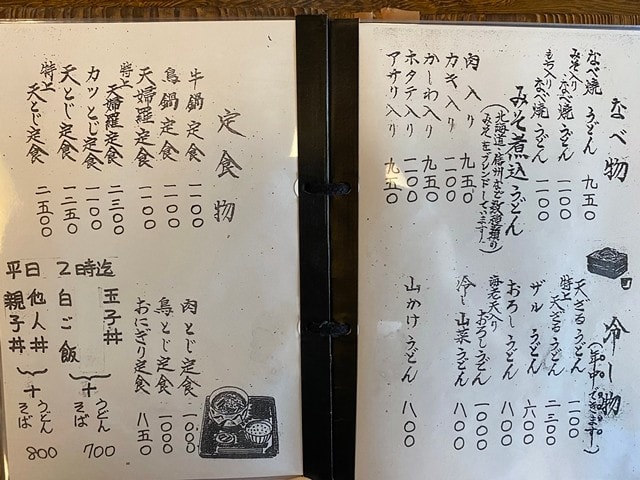 なべ物
なべ焼うどん 九五〇
みそ入りなべ焼うどん 一一〇〇
もち入りなべ焼うどん 一一〇〇
みそ煮込うどん
(北海道・信州など数種類の
みそをブレンドしています!)
肉入り 九五〇
カキ入り 一一〇〇
かしわ入り 九五〇
ホタテ入り 一一〇〇
アサリ入り 九五〇
冷し物
(年中できます!)
天ざるうどん 一一〇〇
特上天ざるうどん 二三〇〇
ザルうどん 六〇〇
おろしうどん 八〇〇
海老天入りおろしうどん 一〇〇〇
冷し山菜うどん 八〇〇
山かけうどん 八〇〇
定食物
牛鍋定食 一一〇〇
鳥鍋定食 一一〇〇
天婦羅定食 一一〇〇
特上天婦羅定食 二三〇〇
カツとじ定食 一一〇〇
天とじ定食 一二五〇
特上天とじ定食 二五〇〇
肉とじ定食 一〇〇〇
鳥とじ定食 一〇〇〇
おにぎり定食 八五〇
平日 2時迄
玉子丼
白ご飯
+うどん
そば
700
他人丼
親子丼
+うどん
そば
800